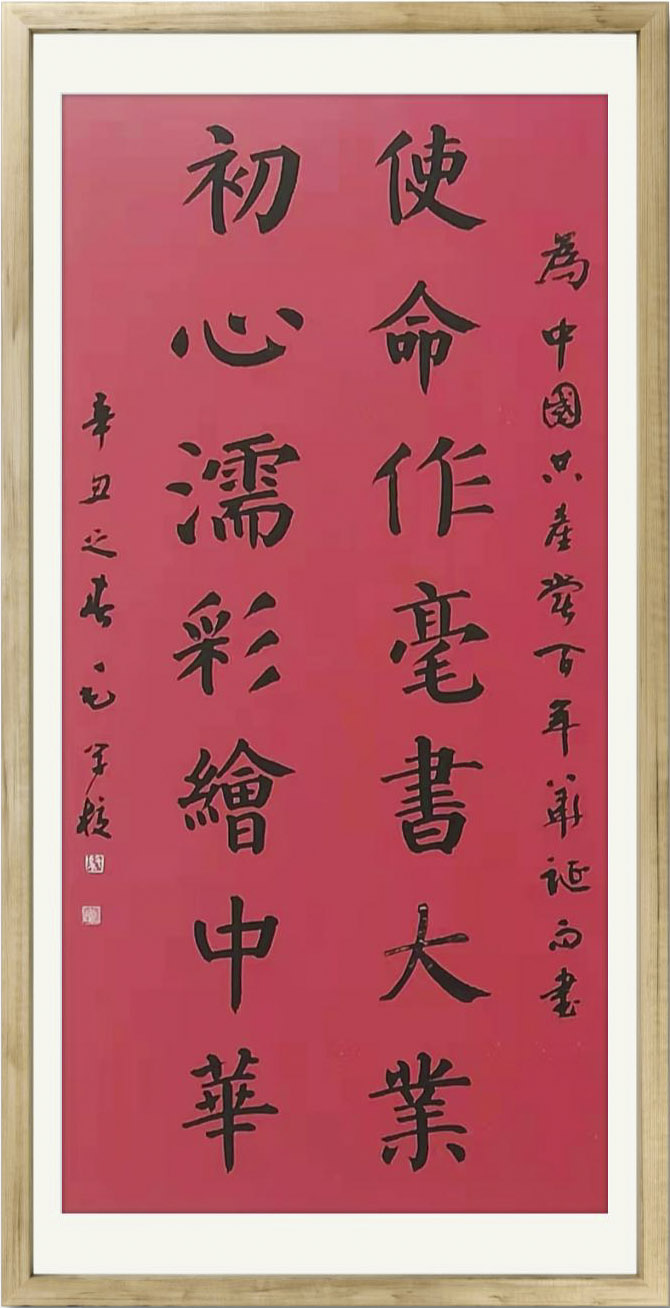 為中國共產黨百年華誕而書
使命作毫書大業
初心濡彩繪中華
辛丑之春 毛学校